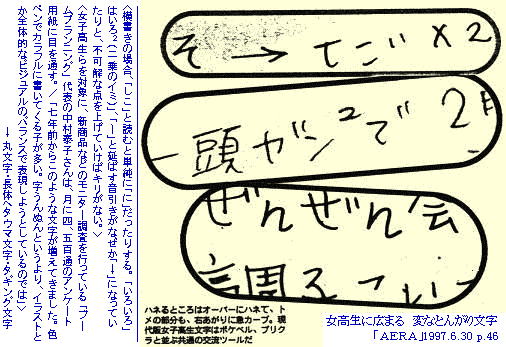 そ→てご×2
頭ガン²で2月
ぜんぜん会
ハネるところはオーバーにハネて、ト
メの部分も、右あがりに急カーブ。現
代版女子高生文字はポケベル、プリク
ラと並ぶ共通の交流ツールだ
女高生に広まる 変なとんがり文字
「AERA」1997.6.30 p.46
〈横書きの場合、「しこ」と読むと単純に「に」だったりする。「いろいろ」
はいろ²(二乗のイミ)、「ー」と延ばす音引きがなぜか「→」になってい
たりと、不可解な点を上げていけばキリがない。〉
〈女子高生らを対象に、新商品などのモニター調査を行っている「ブー
ムプランニング」代表の中村泰子さんは、月に四、五百通のアンケート
用紙に目を通す。/「七年前からこのような文字が増えてきました。色
ペンでカラフルに書いてくる子が多い。字うんぬんというより、イラストと
か全体的なビジュアルのバランスで表現しようとしているのでは」〉
→丸文字・長体ヘタウマ文字・タギング文字